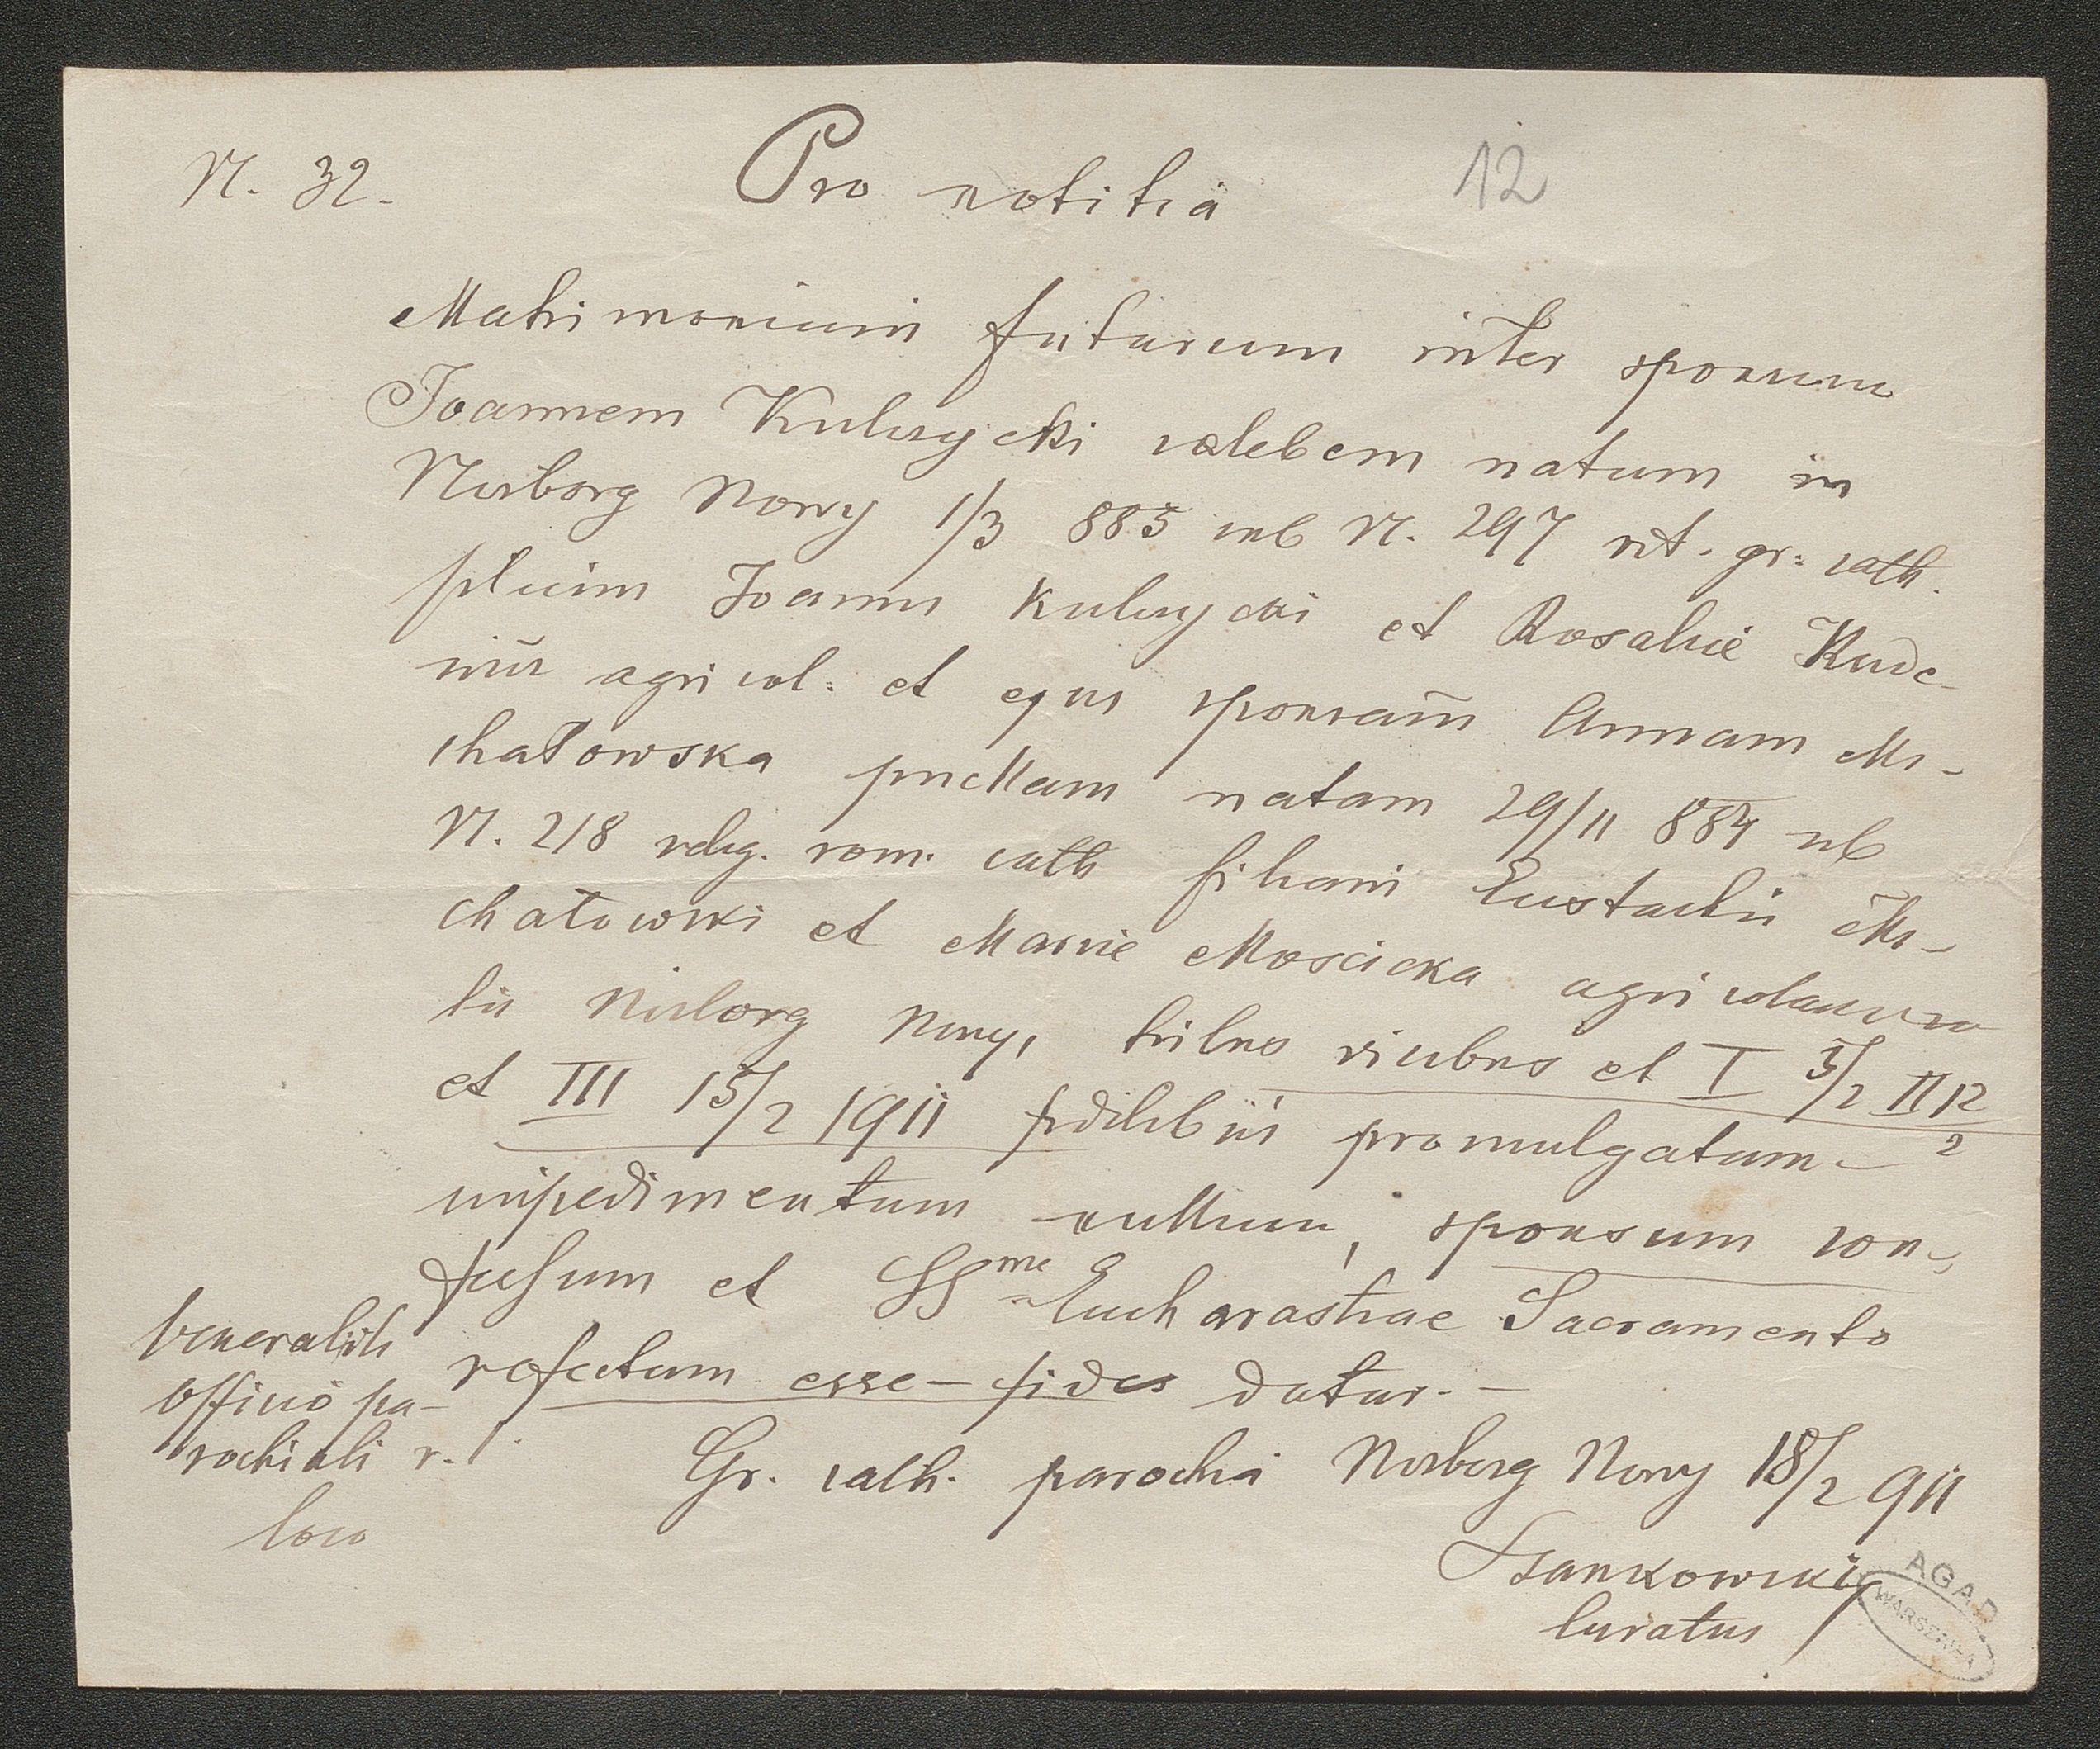 N. 32. Pro notitia 12
Matrimonium futurum inter sponsum
Joannem Kulczycki coelebem natum in
Nirborg Nowy 1/3 885 sub N. 297 rit. gr. cath.
filium Joannis Kulczycki et Rosaliae
agricol. et ejus sponsam Annam Mi-
chałowska puellam natam 29/11 884 sub
N. 218 relig. rom. cath filiam Eustachii Mi-
chałowski et Mariae Mościcka agricolarum
in Nirborg Nowy, tribus vicibus et I 5/2 II 12/2
et III 15/2 1911 fidelibus promulgatum -
impedimentum nullum, sponsum con-
fessum et SSmae Eucharastiae Sacramento
refectum esse - fides datur. -
Gr. cath. parochia Nirborg Nowy 18/2 911
Curatus
Venerabili
Officio pa-
rochiali r. l.
loco
AGAD
WARSZAWA